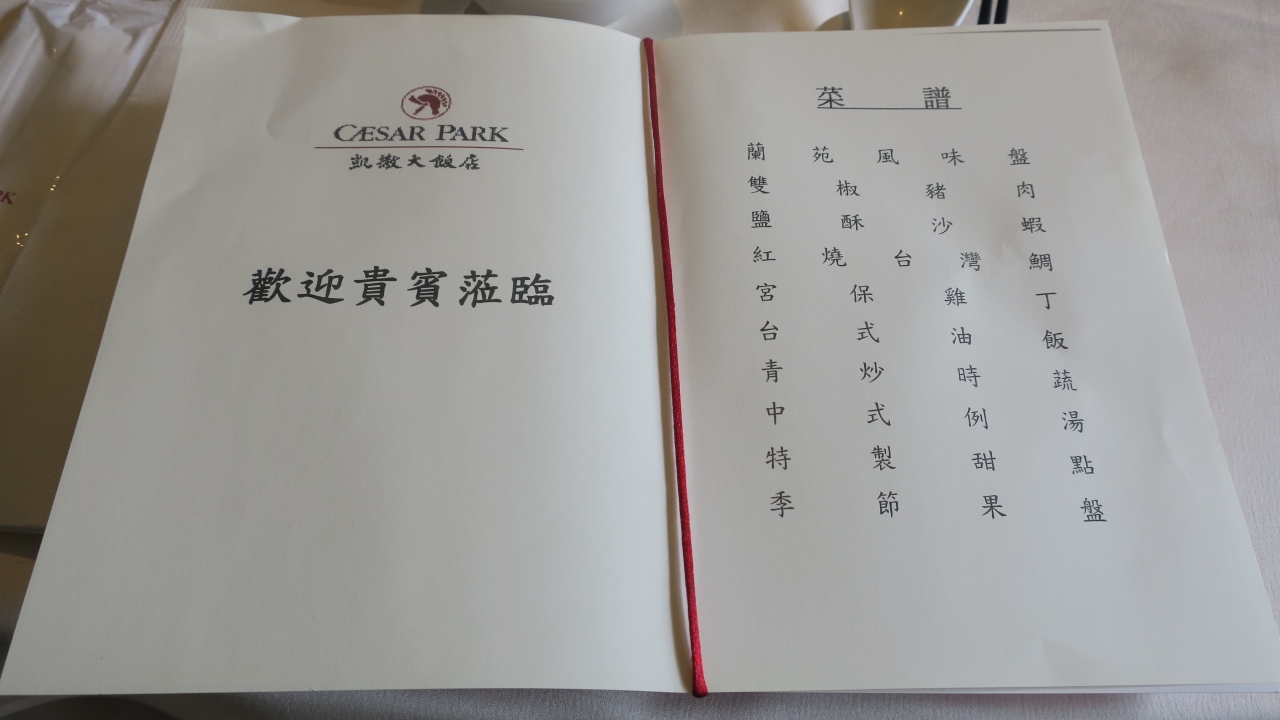 CÆSAR PARK
凱撒大飯店
歡迎貴賓蒞臨
菜譜
蘭苑風味盤
雙椒豬肉
鹽酥沙蝦
紅燒台灣鯛
宮保雞丁
台式油飯
青炒時蔬
中式例湯
特製甜點
季節果盤